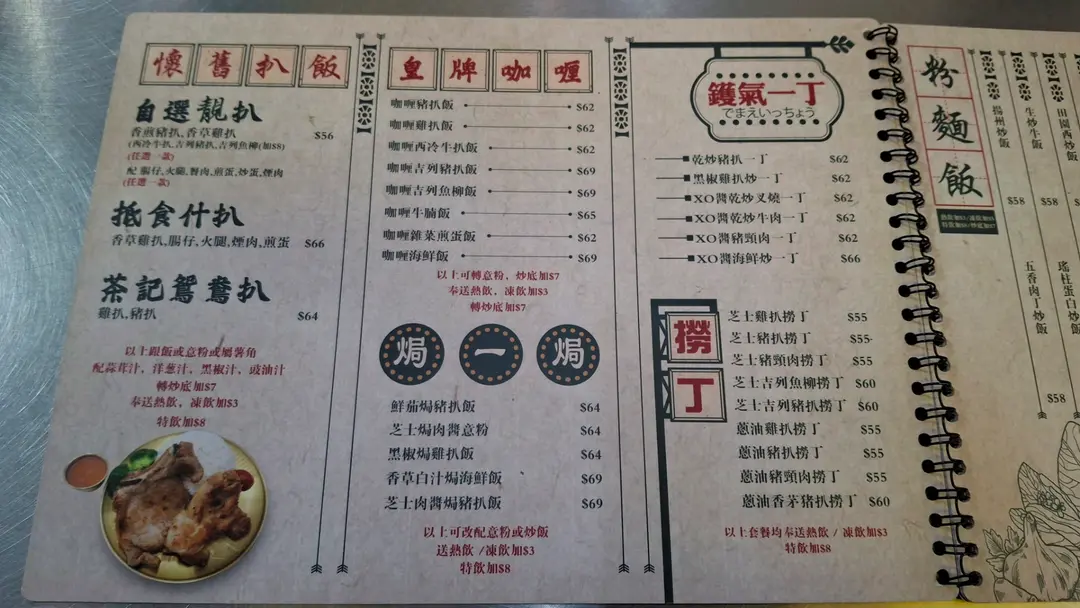 懷舊扒飯
自選靚扒
香煎豬扒,香草雞扒 $56
(西冷牛扒,吉列豬扒,吉列魚柳(加$8)
(任選一款)
配 腸仔,火腿,餐肉,煎蛋,炒蛋,煙肉
(任選一款)
抵食什扒
香草雞扒,腸仔,火腿,煙肉,煎蛋 $66
茶記鴛鴦扒
雞扒,豬扒 $64
以上跟飯或意粉或屬薯角
配蒜茸汁, 洋葱汁, 黑椒汁, 豉油汁
轉炒底加$7
奉送熱飲, 凍飲加$3
特飲加$8
皇牌咖喱
咖喱豬扒飯 $62
咖喱雞扒飯 $62
咖喱西冷牛扒飯 $62
咖喱吉列豬扒飯 $69
咖喱吉列魚柳飯 $69
咖喱牛腩飯 $65
咖喱雜菜煎蛋飯 $62
咖喱海鮮飯 $69
以上可轉意粉, 炒底加$7
奉送熱飲, 凍飲加$3
轉炒底加$7
焗一焗
鮮茄焗豬扒飯 $64
芝士焗肉醬意粉 $64
黑椒焗雞扒飯 $64
香草白汁焗海鮮飯 $69
芝士肉醬焗豬扒飯 $69
以上可改配意粉或炒飯
送熱飲 / 凍飲加$3
特飲加$8
鑊氣一丁
でまえいっちょう
乾炒豬扒一丁 $62
黑椒雞扒炒一丁 $62
XO醬乾炒叉燒一丁 $62
XO醬乾炒牛肉一丁 $62
XO醬豬頸肉一丁 $62
XO醬海鮮炒一丁 $66
撈丁
芝士雞扒撈丁 $55
芝士豬扒撈丁 $55
芝士豬頸肉撈丁 $55
芝士吉列魚柳撈丁 $60
芝士吉列豬扒撈丁 $60
蔥油雞扒撈丁 $55
蔥油豬扒撈丁 $55
蔥油豬頸肉撈丁 $55
蔥油香茅豬扒撈丁 $60
以上套餐均奉送熱飲 / 凍飲加$3
特飲加$8
粉麵飯
揚州炒飯 $58
生炒牛飯 $58
田園西炒飯
五香肉丁炒飯 $58
瑤柱蛋白炒飯